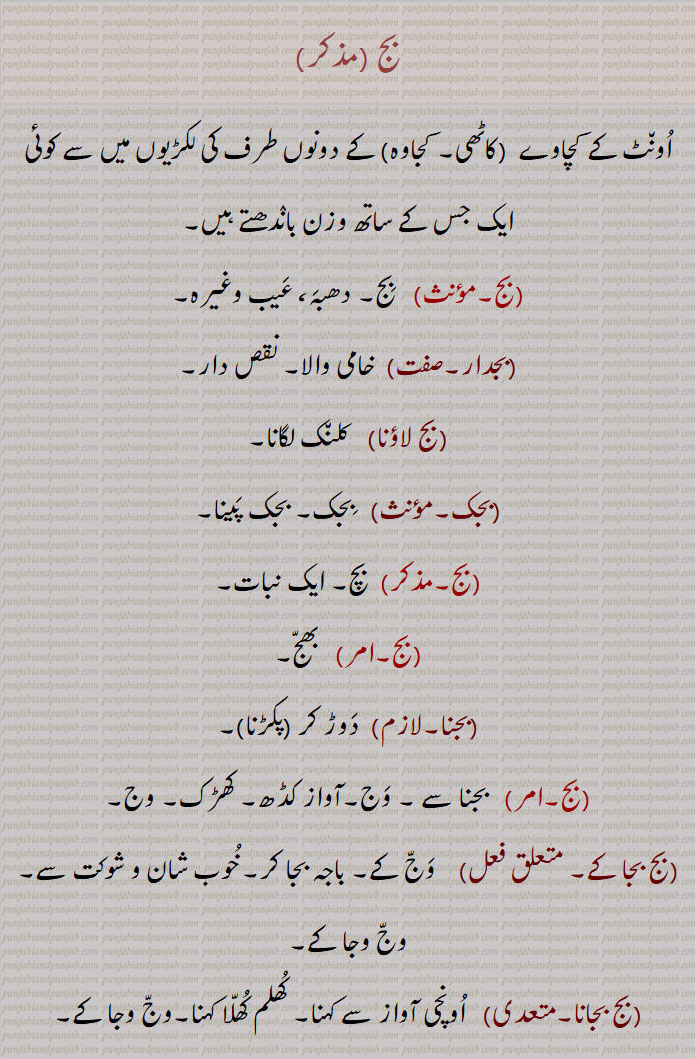 بج (مذکر)
اُونٚٹ کے کچاوے (کاٹھی۔ کجاوہ) کے دونوں طرف کی لکڑیوں میں سے کوئی
ایک جس کے ساتھ وزن باندٚھتے ہیں۔
(بج۔مؤنث) بِج۔ دھبہَ، عَیب وغیرہ۔
(بجدار۔صفت) خامی والا۔ نقص دار۔
(بج لاؤنا) کلنٚک لگانا۔
(بجک۔مؤنث) بِجک۔ بجک پَینا۔
(بج۔مذکر) بچ۔ ایک نبات۔
(بج۔امر) بھجّ۔
(بجنا۔لازم) دَوڑ کر (پکڑنا)۔
(بج۔امر) بجنا سے ۔ وَج۔آواز کڈھ۔ کھَڑک۔ وج۔
(بج بجا کے۔ متعلق فعل) وَجّ کے۔ باجہ بجا کر۔خُوب شان و شوکت سے۔
وجّ وجا کے۔
(بج بجانا۔متعدی) اُونٚچی آواز سے کہنا۔ کُھلم کُھلّا کہنا۔وجّ وجا کے۔